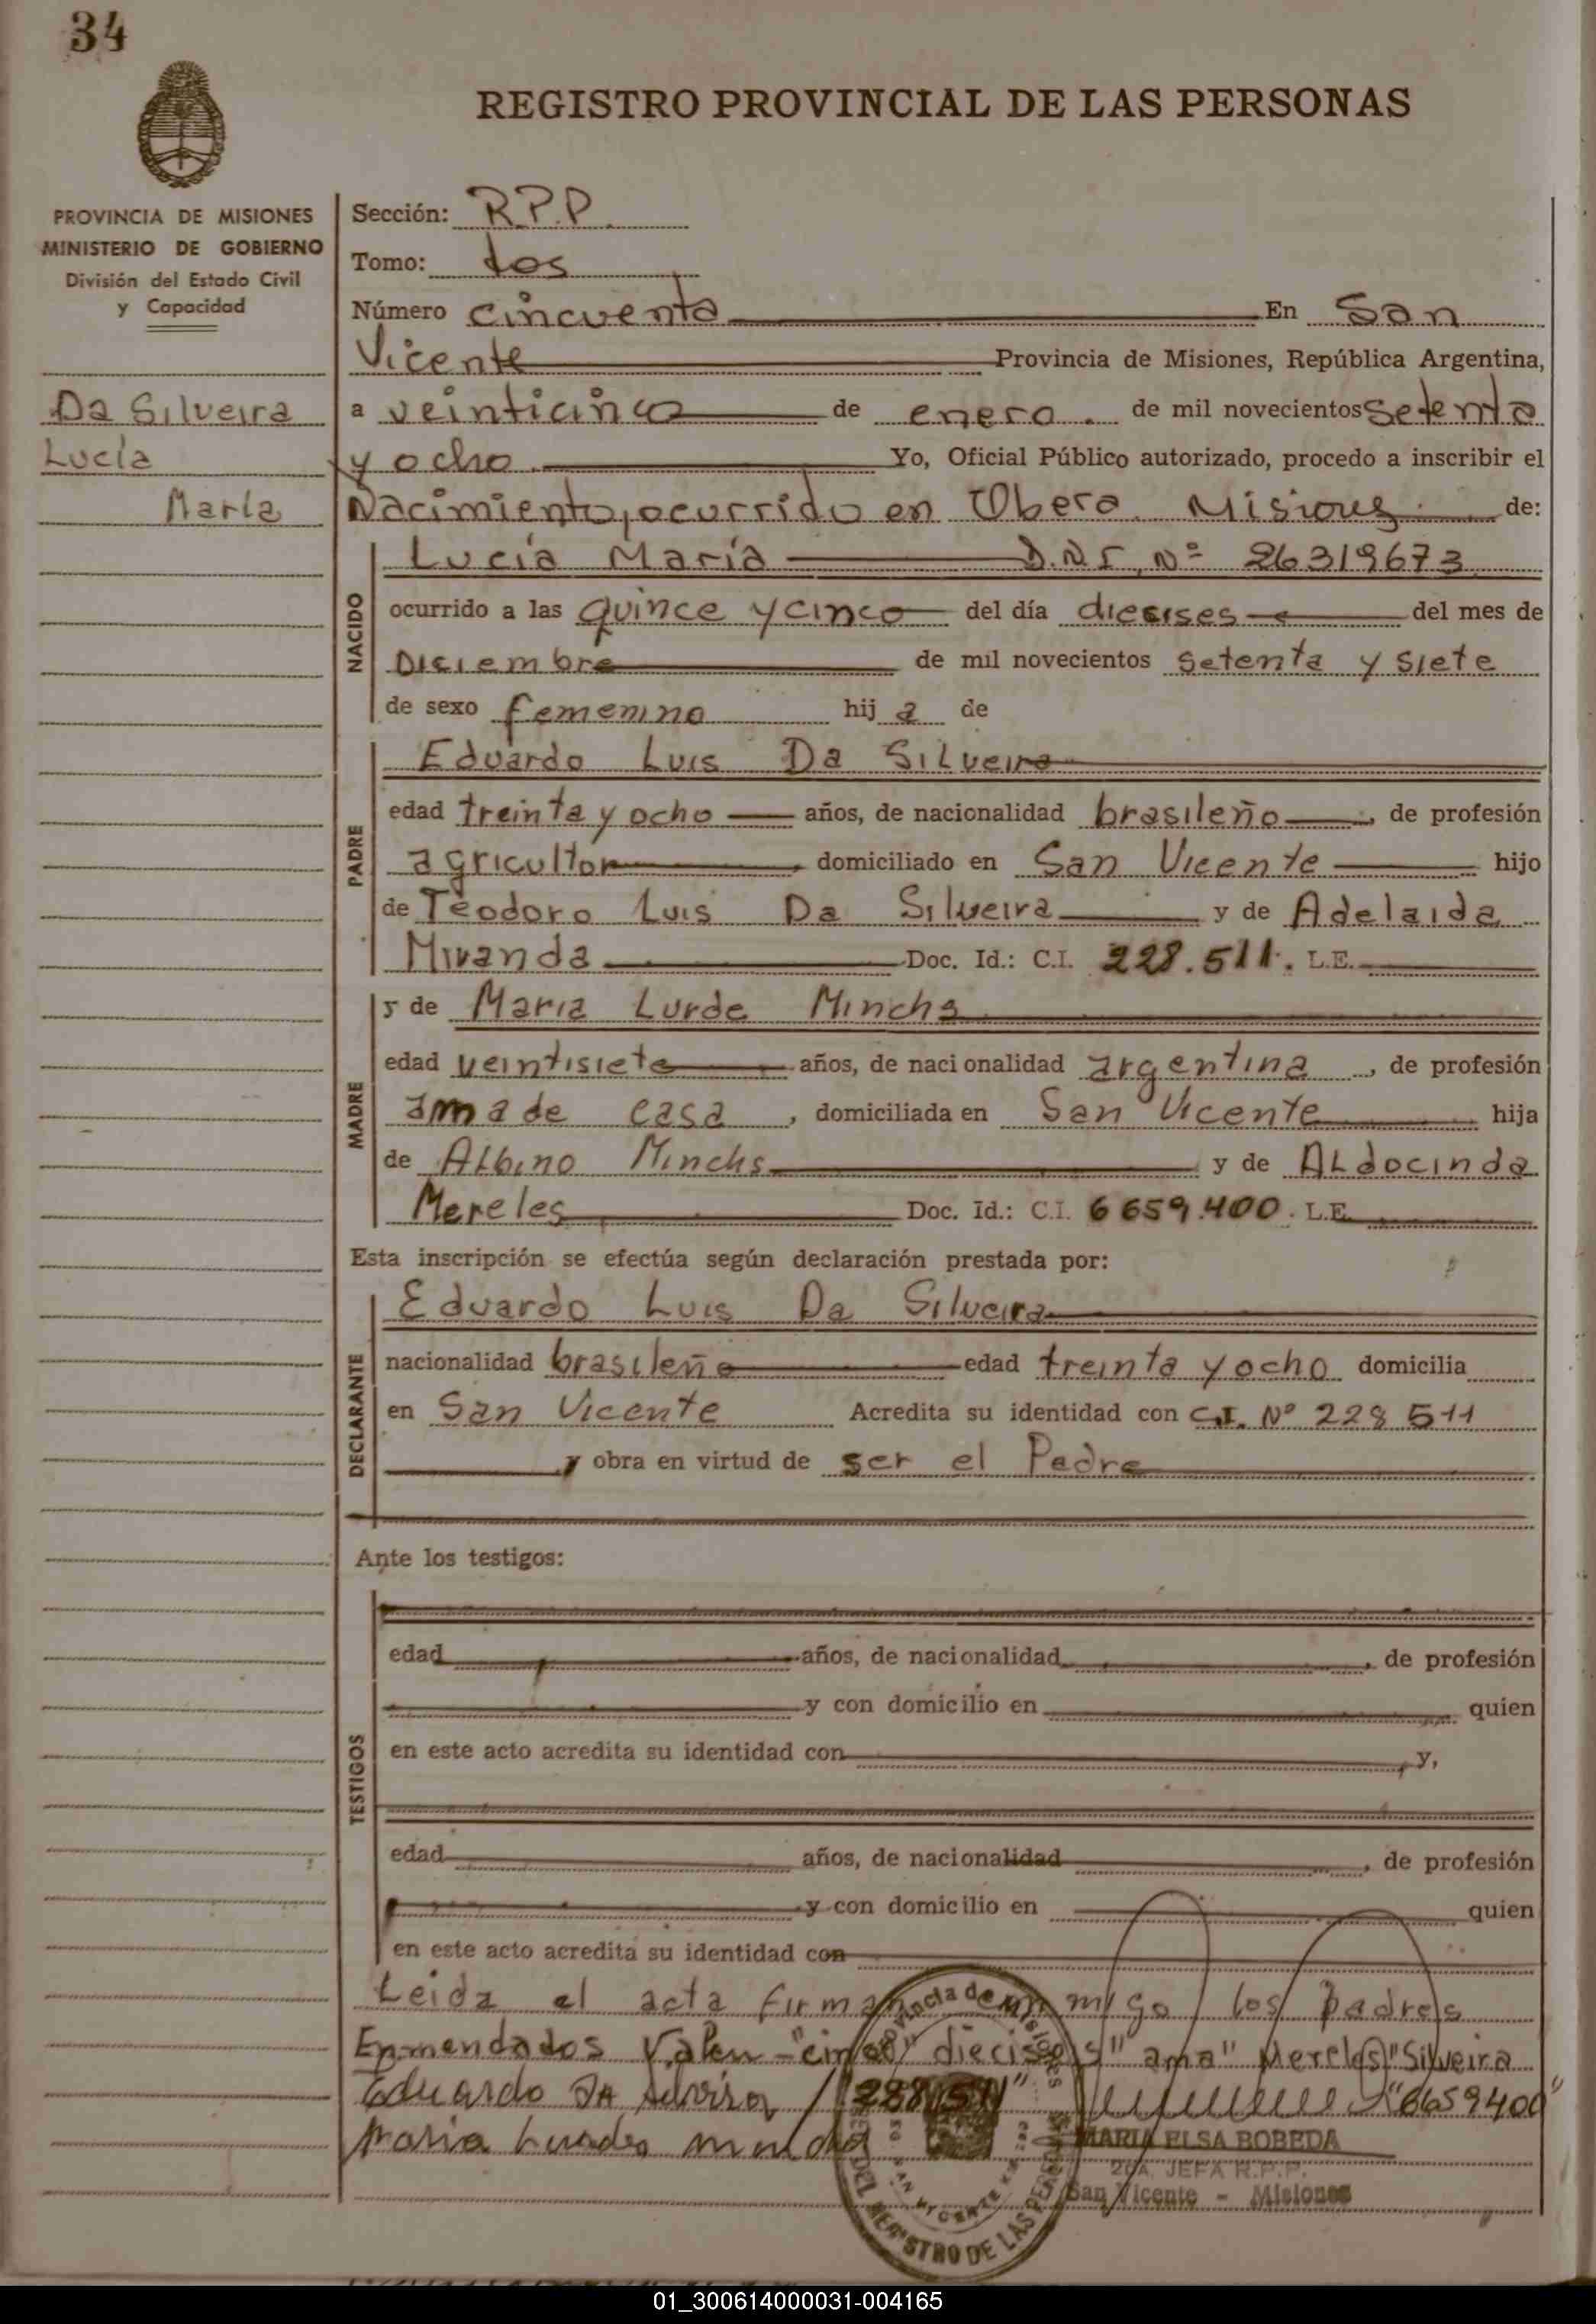 34
REGISTRO PROVINCIAL DE LAS PERSONAS
PROVINCIA DE MISIONES
MINISTERIO DE GOBIERNO
División del Estado Civil
y Capacidad
Da Silveira
Lucía
María
Sección: R.P.P.
Tomo: dos
Número cincuenta En San
Vicente Provincia de Misiones, República Argentina,
a veinticinco de enero. de mil novecientos Setenta
y ocho Yo, Oficial Público autorizado, procedo a inscribir el
Nacimiento, ocurrido en Obera Misiones de:
NACIDO
Lucía María D.N.I. Nº 26319673
ocurrido a las quince y cinco del día diecises del mes de
Diciembre de mil novecientos setenta y siete
de sexo femenino hij a de
PADRE
Eduardo Luis Da Silveira
edad treinta y ocho años, de nacionalidad brasileño, de profesión
agricultor domiciliado en San Vicente hijo
de Teodoro Luis Da Silveira y de Adelaida
Miranda Doc. Id.: C.I. 228.511. L.E.
MADRE
y de Maria Lurde Mincha
edad veintisiete años, de nacionalidad argentina, de profesión
ama de casa, domiciliada en San Vicente hija
de Albino Minchs y de ALdocinda
Mereles Doc. Id.: C.I. 6659.400. L.E.
Esta inscripción se efectúa según declaración prestada por:
DECLARANTE
Eduardo Luis Da Silveira
nacionalidad brasileño edad treinta y ocho domicilia
en San Vicente Acredita su identidad con C.I. Nº 228 511
y obra en virtud de ser el Padre
Ante los testigos:
TESTIGOS
edad años, de nacionalidad, de profesión
y con domicilio en quien
en este acto acredita su identidad con y,
edad años, de nacionalidad, de profesión
y con domicilio en quien
en este acto acredita su identidad con
Leida el acta firman conmigo los padres
Enmendados Valen - "cinco" dieciseis" ama" Mereles" Silveira
Eduardo DA "6659400"
Maria
MARIA ELSA BOBEDA
2da. JEFA R.P.P.
San Vicente - Misiones
Provincia de Misiones
REGISTRO DE LAS PERSONAS
SAN VICENTE
01_300614000031-004165